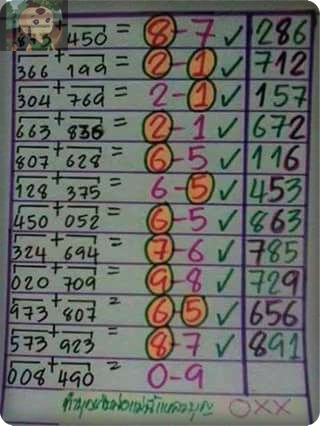 450 = 8-7 ✓ 286
366 + 199 = 2-1 ✓ 712
304 + 769 = 2-1 ✓ 157
663 + 836 = 2-1 ✓ 672
807 + 628 = 6-5 ✓ 116
128 + 375 = 6-5 ✓ 453
450 + 052 = 6-5 ✓ 863
324 + 694 = 7-6 ✓ 785
020 + 709 = 9-8 ✓ 729
973 + 807 = 6-5 ✓ 656
573 + 923 = 8-7 ✓ 891
008 + 490 = 0-9
○××